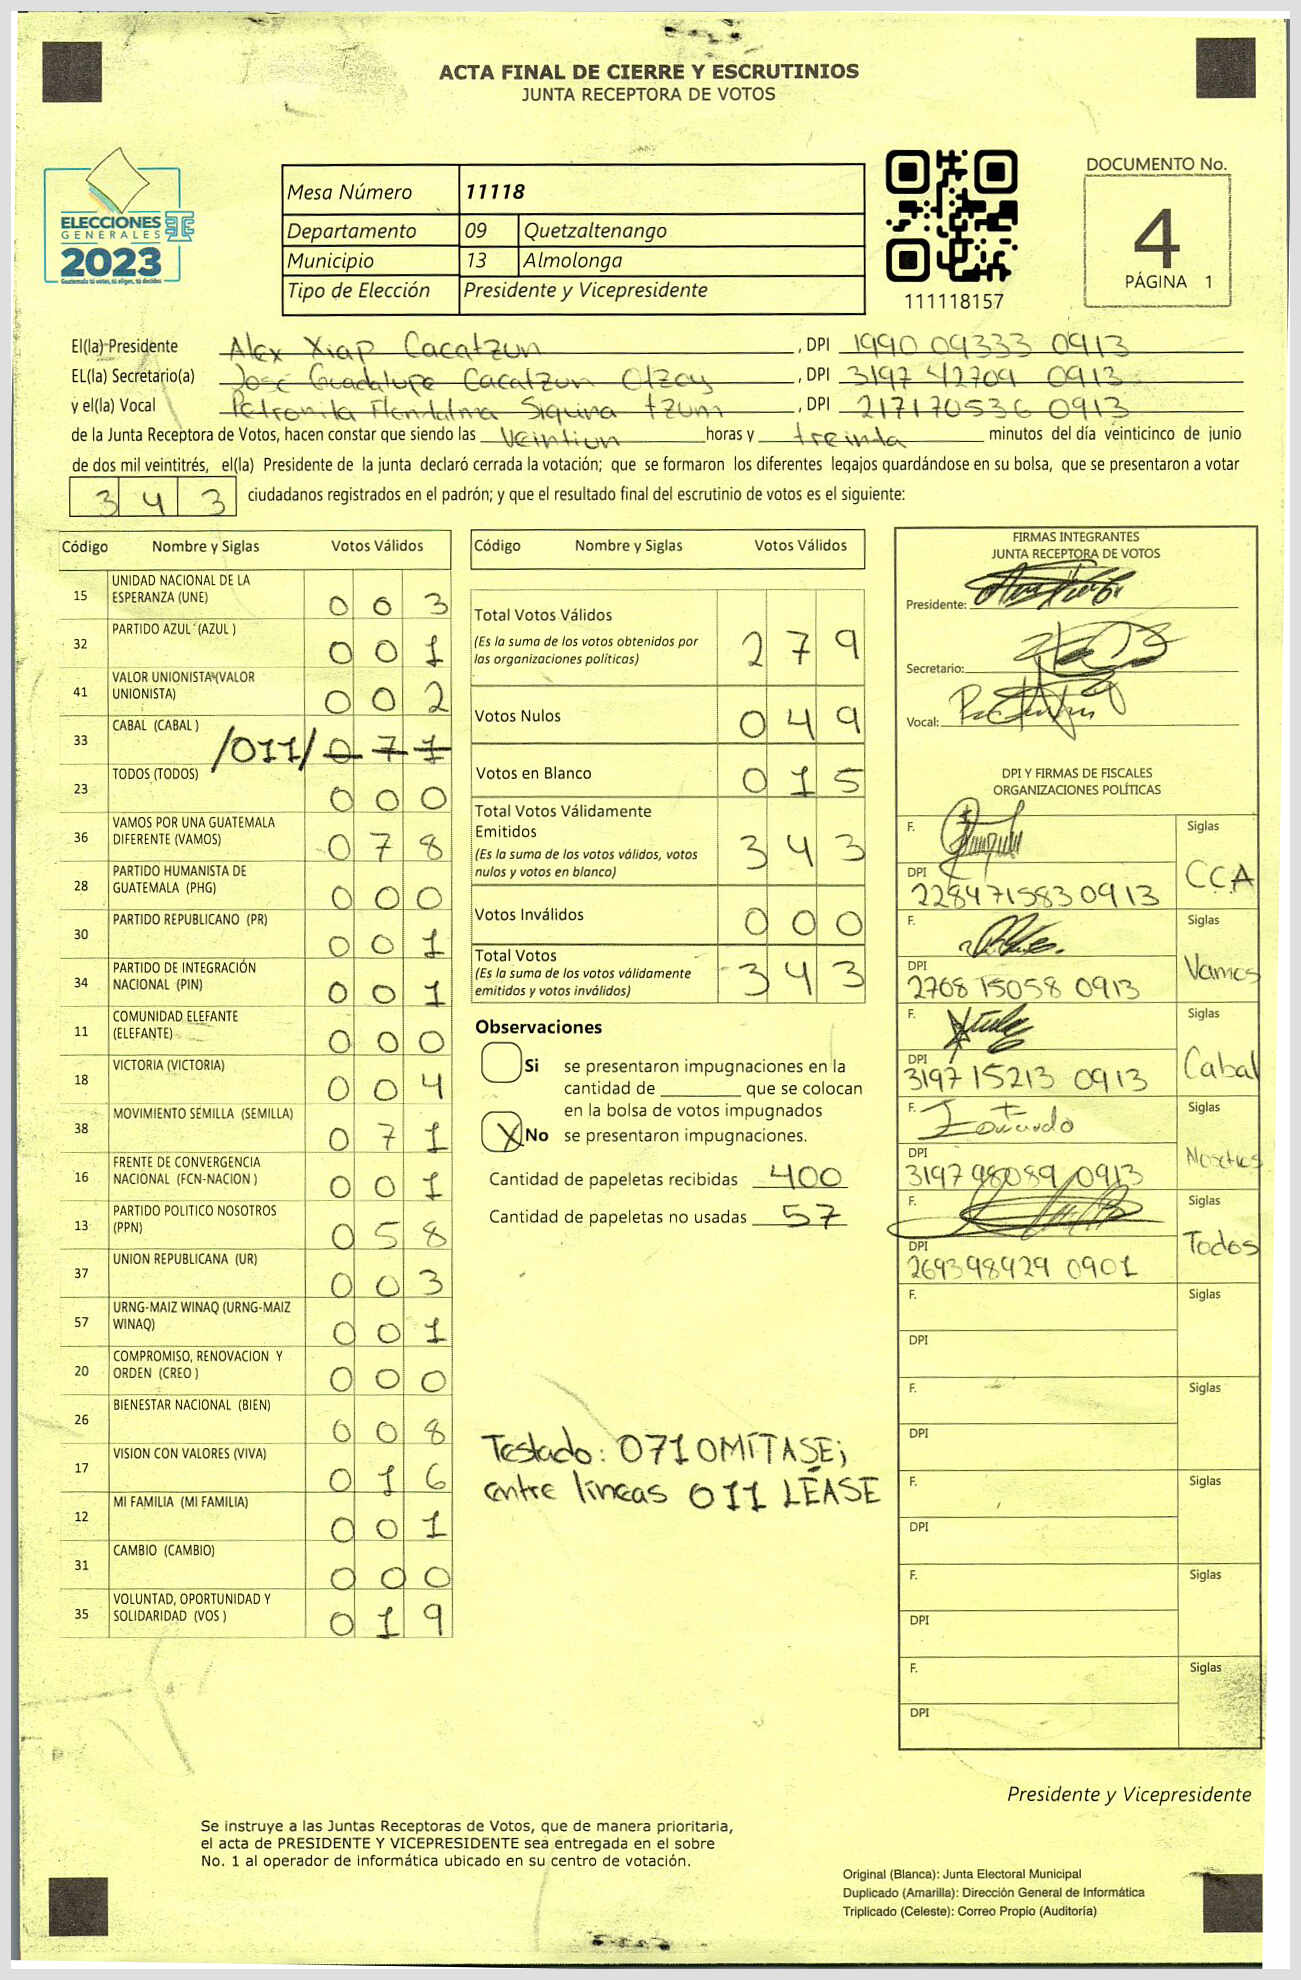 ACTA FINAL DE CIERRE Y ESCRUTINIOS
JUNTA RECEPTORA DE VOTOS
ELECCIONES
GENERALES
2023
Guatemala tú votas, tú eliges, tú decides
Mesa Número 11118
Departamento 09 Quetzaltenango
Municipio 13 Almolonga
Tipo de Elección Presidente y Vicepresidente
111118157
DOCUMENTO No.
4
PÁGINA 1
El(la) Presidente Alex Xiap Cacatzun, DPI 1990 09333 0913
EL(la) Secretario(a) José Guadalupe Cacatzun Otzoy, DPI 3197 42709 0913
y el(la) Vocal Petronila Siquina tzum, DPI 217170536 0913
de la Junta Receptora de Votos, hacen constar que siendo las veintiun horas y treinta minutos del día veinticinco de junio
de dos mil veintitrés, el(la) Presidente de la junta declaró cerrada la votación; que se formaron los diferentes legajos guardándose en su bolsa, que se presentaron a votar
343 ciudadanos registrados en el padrón; y que el resultado final del escrutinio de votos es el siguiente:
Código Nombre y Siglas Votos Válidos
15 UNIDAD NACIONAL DE LA ESPERANZA (UNE) 003
32 PARTIDO AZUL (AZUL ) 001
41 VALOR UNIONISTA (VALOR UNIONISTA) 002
33 CABAL (CABAL ) /011/ 071
23 TODOS (TODOS) 000
36 VAMOS POR UNA GUATEMALA DIFERENTE (VAMOS) 078
28 PARTIDO HUMANISTA DE GUATEMALA (PHG) 000
30 PARTIDO REPUBLICANO (PR) 001
34 PARTIDO DE INTEGRACIÓN NACIONAL (PIN) 001
11 COMUNIDAD ELEFANTE (ELEFANTE) 000
18 VICTORIA (VICTORIA) 004
38 MOVIMIENTO SEMILLA (SEMILLA) 071
16 FRENTE DE CONVERGENCIA NACIONAL (FCN-NACION ) 001
13 PARTIDO POLITICO NOSOTROS (PPN) 058
37 UNION REPUBLICANA (UR) 003
57 URNG-MAIZ WINAQ (URNG-MAIZ WINAQ) 001
20 COMPROMISO, RENOVACION Y ORDEN (CREO ) 000
26 BIENESTAR NACIONAL (BIEN) 008
17 VISION CON VALORES (VIVA) 016
12 MI FAMILIA (MI FAMILIA) 001
31 CAMBIO (CAMBIO) 000
35 VOLUNTAD, OPORTUNIDAD Y SOLIDARIDAD (VOS ) 019
Código Nombre y Siglas Votos Válidos
Total Votos Válidos 279
(Es la suma de los votos obtenidos por
las organizaciones políticas)
Votos Nulos 049
Votos en Blanco 015
Total Votos Válidamente
Emitidos 343
(Es la suma de los votos válidos, votos
nulos y votos en blanco)
Votos Inválidos 000
Total Votos 343
(Es la suma de los votos válidamente
emitidos y votos inválidos)
Observaciones
Si se presentaron impugnaciones en la
cantidad de ________ que se colocan
en la bolsa de votos impugnados
X No se presentaron impugnaciones.
Cantidad de papeletas recibidas 400
Cantidad de papeletas no usadas 57
Testado: 071 OMÍTASE;
entre líneas 011 LÉASE
FIRMAS INTEGRANTES
JUNTA RECEPTORA DE VOTOS
Presidente:
Secretario:
Vocal:
DPI Y FIRMAS DE FISCALES
ORGANIZACIONES POLÍTICAS
F. Siglas
DPI CCA
228471583 0913
F. Siglas
DPI Vamos
2708 15058 0913
F. Siglas
DPI Cabal
3197 15213 0913
F. Siglas
DPI Nosotros
3197 98089 0913
F. Siglas
DPI Todos
269398929 0901
F. Siglas
DPI
F. Siglas
DPI
F. Siglas
DPI
F. Siglas
DPI
F. Siglas
DPI
Presidente y Vicepresidente
Se instruye a las Juntas Receptoras de Votos, que de manera prioritaria,
el acta de PRESIDENTE Y VICEPRESIDENTE sea entregada en el sobre
No. 1 al operador de informática ubicado en su centro de votación.
Original (Blanca): Junta Electoral Municipal
Duplicado (Amarilla): Dirección General de Informática
Triplicado (Celeste): Correo Propio (Auditoría)